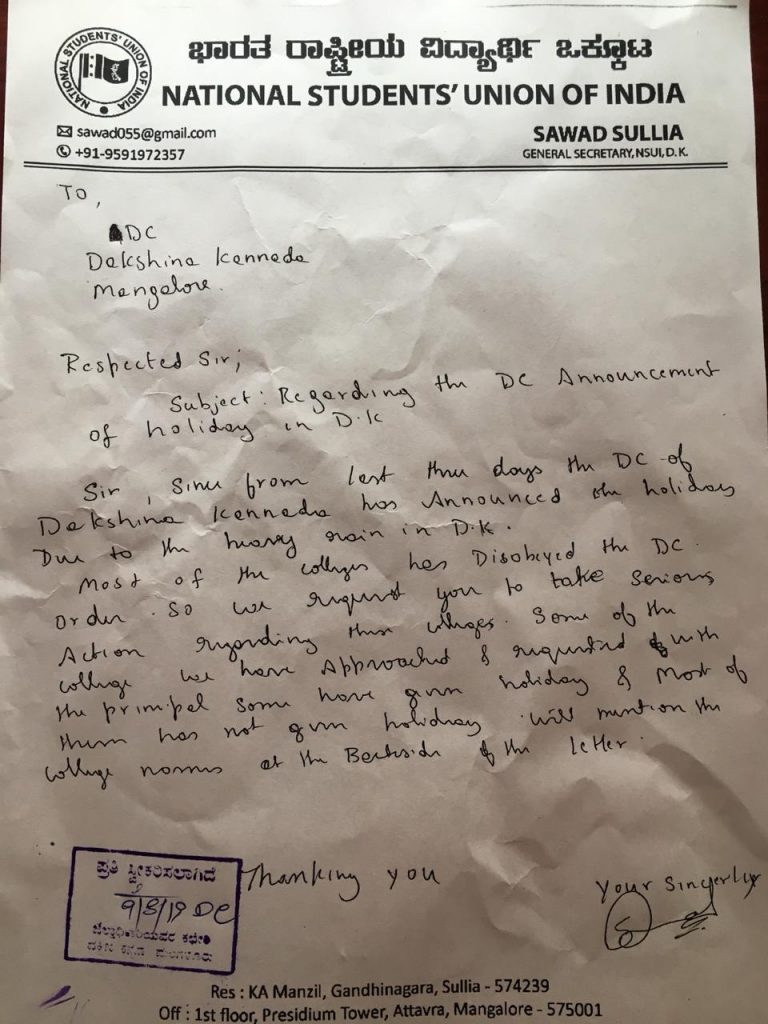 NATIONAL STUDENTS' UNION OF INDIA
ಭಾರತ ರಾಷ್ಟ್ರೀಯ ವಿದ್ಯಾರ್ಥಿ ಒಕ್ಕೂಟ
NATIONAL STUDENTS' UNION OF INDIA
sawad055@gmail.com
+91-9591972357
SAWAD SULLIA
GENERAL SECRETARY, NSUI, D.K.
To,
DC
Dakshina Kannada
Mangalore.
Respected Sir;
Subject: Regarding the DC Announcement
of holiday in D.K
Sir, Since from last three days the DC of
Dakshina Kannada has Announced the holiday
Due to the heavy rain in D.K.
Most of the colleges has Disobeyed the DC
order. So we request you to take serious
Action regarding these colleges. Some of the
college we have Approached & requested with
the principal some have given holiday & Most of
them has not given holiday. will mention the
college names at the Backside of the letter.
Thanking you
Your Singerly
ಪ್ರತಿ ಸ್ವೀಕರಿಸಲಾಗಿದೆ
9/8/19 DC
ಜಿಲ್ಲಾಧಿಕಾರಿಯವರ ಕಛೇರಿ
ದಕ್ಷಿಣ ಕನ್ನಡ ಮಂಗಳೂರು
Res : KA Manzil, Gandhinagara, Sullia - 574239
Off : 1st floor, Presidium Tower, Attavra, Mangalore - 575001